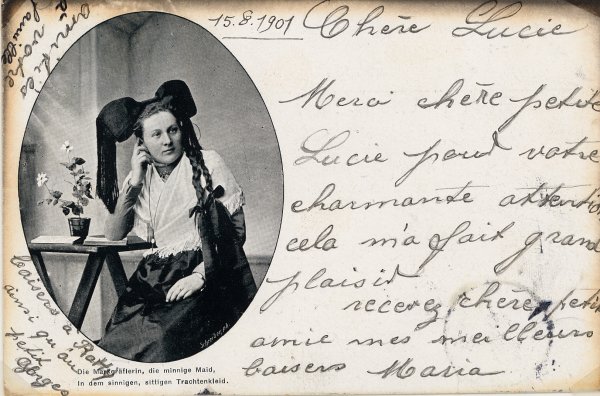 15.8.1901
Chère Lucie
Merci chère petite
Lucie pour votre
charmante attention
cela m'a fait grand
plaisir
recevez chère petite
amie mes meilleurs
baisers Maria
baisers à
ainsi qu'au
petit
Georges
famille
Die Markgräflerin, die minnige Maid,
In dem sinnigen, sittigen Trachtenkleid.